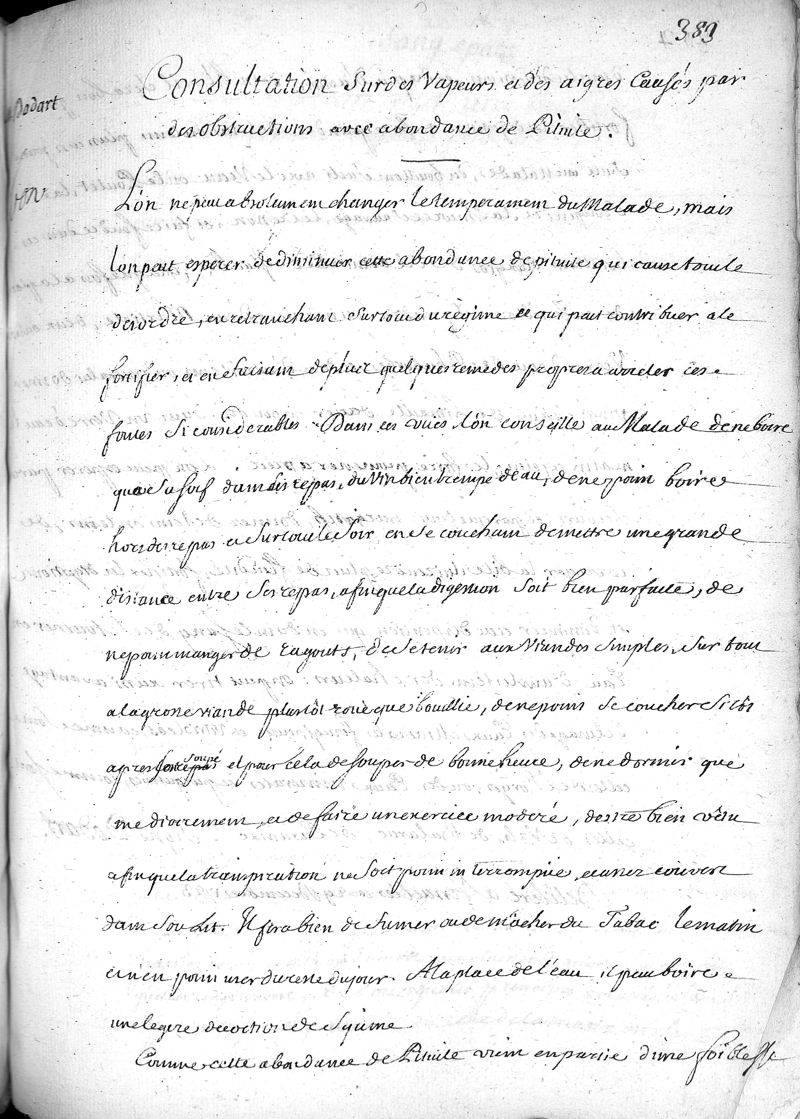 383
Consultation Sur des Vapeurs et des aigres Causés par
des obstructions avec abondance de Pituite.
Bodart
L'on ne peut absolument changer le temperament du Malade, mais
lon peut esperer de diminuer cette abondance de pituite qui cause tout le
desordre, en retranchant Surtout du regime ce qui peut contribuer a le
fortifier, et en faisant de plus quelques remedes propres a arreter ces
fontes Si considerables. Dans ces vües l'on conseille au Malade de ne boire
que a Sa soif dans Ses repas, du Vin bien trempé d'eau, de ne point boire
hors des repas et Surtout le Soir en Se couchant de mettre une grande
distance entre Ses repas, afin que la digestion Soit bien parfaite, de
ne point manger de ragouts, de Se tenir aux Viandes Simples, Sur tout
a la grosse viande plustôt rotie que boüillie, de ne point Se coucher Si tôt
apres Soupé et pour cela de Souper de bonne heure, de ne dormir que
mediocrement, et de faire un exercice moderé, destre bien vêtu
afin que la transpiration ne Soit point interrompüe, et assez couvert
dans Son Lit. Il fera bien de fumer ou de mâcher du Tabac le matin
et n'en point user du reste du jour. A la place de l'eau il peut boire
une legere decoction de Sqüine
Comme cette abondance de Pituite vient en partie d'une foiblesse